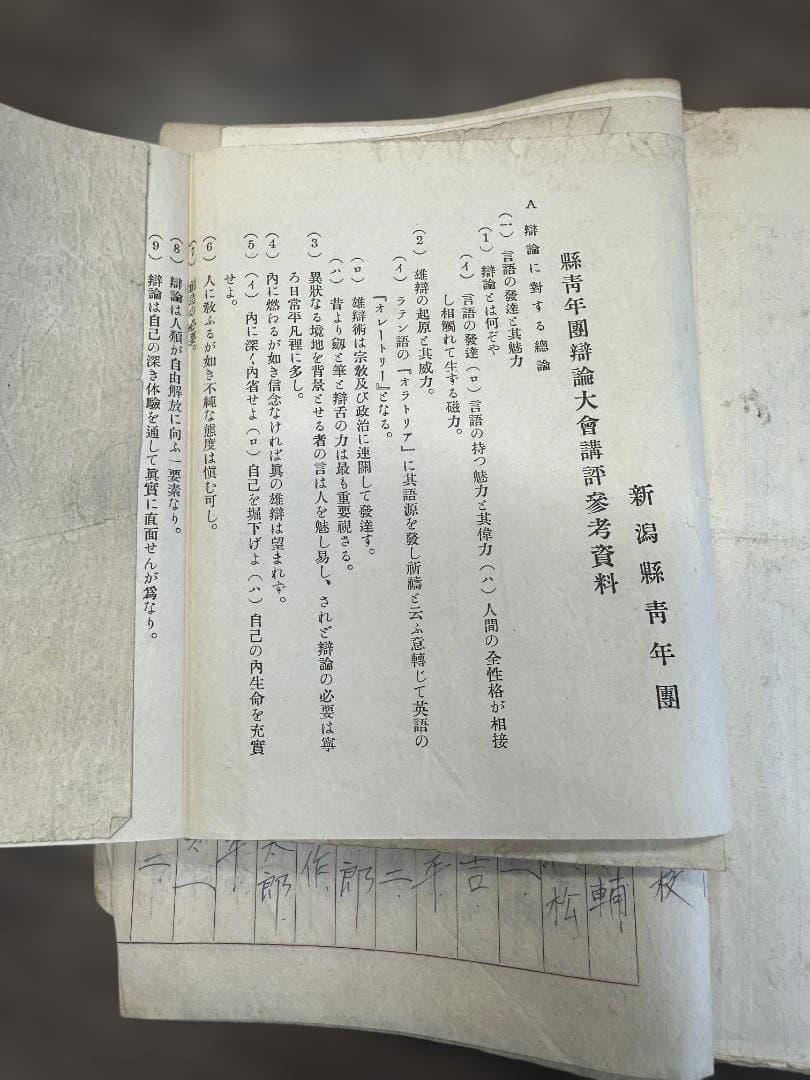 新潟縣青年團
縣青年團辯論大會講評參考資料
A 辯論に對する總論
(一) 言語の發達と其魅力
(1) 辯論とは何ぞや
(イ) 言語の發達(ロ)言語の持つ魅力と其偉力(ハ)人間の全性格が相接
し相觸れて生する磁力。
(2) 雄辯の起原と其威力。
(イ) ラテン語の『オラトリア』に其語源を發し祈禱と云ふ意轉じて英語の
『オレートリー』となる。
(ロ) 雄辯術は宗敎及び政治に連關して發達す。
(ハ) 昔より劔と筆と辯舌の力は最も重要視さる。
(3) 異狀なる境地を背景とせる者の言は人を魅し易し、されど辯論の必要は寧
ろ日常平凡裡に多し。
(4) 內に燃わるが如き信念なければ眞の雄辯は望まれず。
(5) (イ) 內に深く內省せよ(ロ)自己を堀下げよ(ハ)自己の內生命を充實
せよ。
(6) 人に敎ふるが如き不純な態度は愼む可し。
(7) の必要。
(8) 辯論は人類が自由解放に向ふ一要素なり。
(9) 辯論は自己の深き体驗を通して眞實に直面せんが爲なり。
校
輔
松
一
吉
平
二
郎
作
太郎
年
一
二